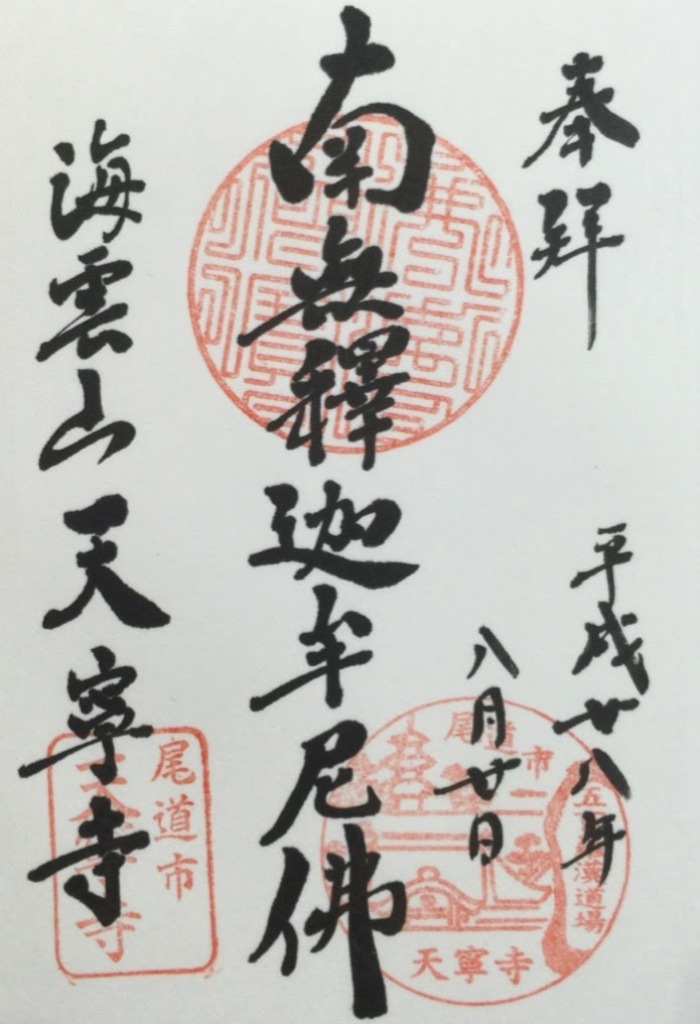 奉拜
平成廿八年
八月廿日
南無釋迦牟尼佛
海雲山天寧寺
尾道市
五 漢道場
天寧寺
尾道市
寺